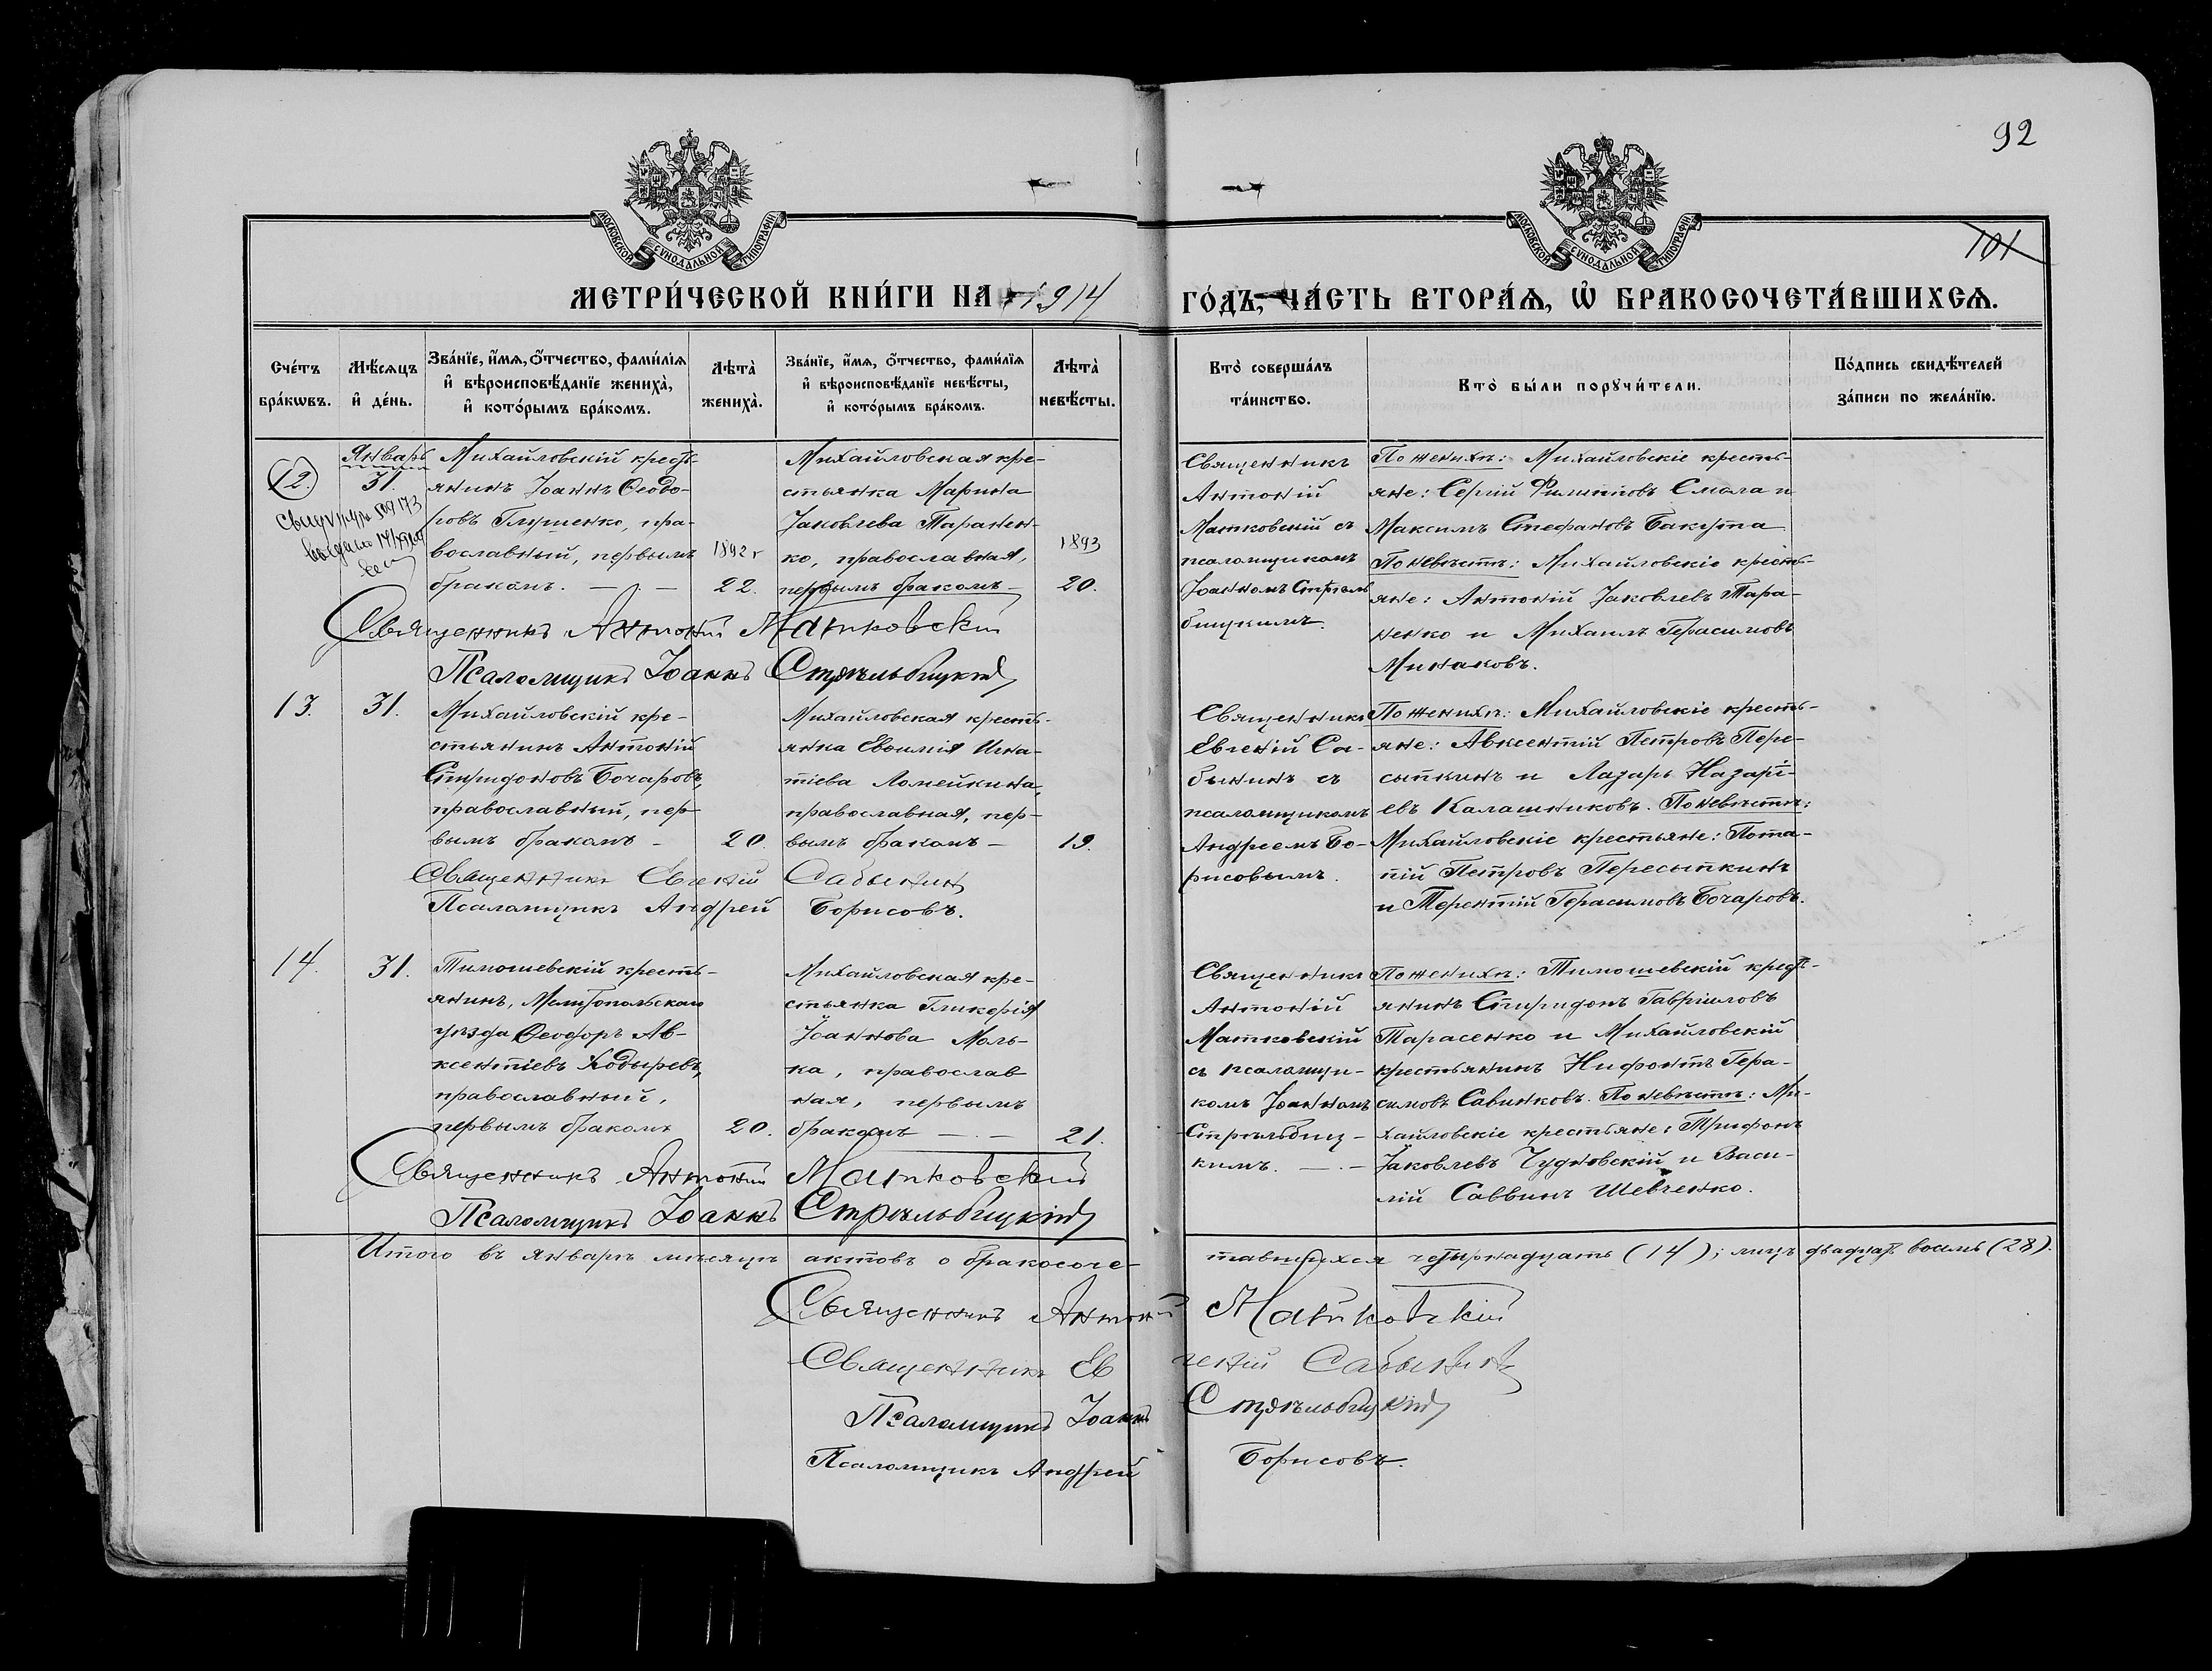 92
101
МОСКОВСКОЙ СѴНОДАЛЬНОЙ ТИПОГРАФІИ
МОСКОВСКОЙ СѴНОДАЛЬНОЙ ТИПОГРАФІИ
МЕТРИ́ЧЕСКОЙ КНИ́ГИ НА 1914
ГО́ДЪ, ЧА́СТЬ ВТОРА́Ѧ, Ѡ҆ БРАКОСОЧЕТА́ВШИХСѦ.
Сче́тъ
бра́кѡвъ.
Мѣ́сѧцъ
и҆ де́нь.
Зва́нїе, и҆́мѧ, ѻ҆́тчество, фами́лїѧ
и҆ вѣроисповѣ́данїе жениха̀,
и҆ кото́рымъ бра́комъ.
Лѣта̀
жениха̀.
Зва́нїе, и҆́мѧ, ѻ҆́тчество, фами́лїѧ
и҆ вѣроисповѣ́данїе невѣ́сты,
и҆ кото́рымъ бра́комъ.
Лѣта̀
невѣ́сты.
Кто̀ соверша́лъ
та́инство.
Кто̀ бы́ли порꙋчи́тели.
По́дпись свидѣ́телей
за́писи по жела́нїю.
12.
Январь
31.
Михайловскій кресть-
янинъ Іоаннъ Ѳеодо-
ровъ Глущенко, пра-
вославный, первымъ
бракомъ. — —
1892 г
22.
Михайловская кре-
стьянка Марина
Іаковлева Таранен-
ко, православная,
первымъ бракомъ —
1893
20.
Священникъ
Антоній
Матковскій съ
псаломщикомъ
Іоанномъ Стрѣль
бицкимъ.
По женихѣ: Михайловскіе кресть-
яне: Сергій Филипповъ Смола и
Максимъ Стефановъ Бакута
По невѣстѣ: Михайловскіе кресть-
яне: Антоній Іаковлевъ Тара-
ненко и Михаилъ Герасимовъ
Минаковъ.
Священникъ Антоній Матковскій
Псаломщикъ Іоаннъ Стрѣльбицкій
13.
31.
Михайловскій кре-
стьянинъ Антоній
Спиридоновъ Бочаровъ,
православный, пер
вымъ бракомъ —
20.
Михайловская кресть-
янка Евѳимія Игна-
тіева Ломейкина,
православная, пер-
вымъ бракомъ —
19.
Священникъ
Евгеній Са-
бынинъ съ
псаломщикомъ
Андреемъ Бо-
рисовымъ.
По женихѣ: Михайловскіе кресть-
яне: Авксентій Петровъ Пере-
сыпкинъ и Лазарь Назарі-
евъ Калашниковъ. По невѣстѣ:
Михайловскіе крестьяне: Пота-
пій Петровъ Пересыпкинъ
и Терентій Герасимовъ Бочаровъ.
Священникъ Евгеній Сабынинъ
Псаломщикъ Андрей Борисовъ.
14.
31.
Тимошевскій кресть-
янинъ, Мелитопольскаго
уѣзда Ѳеодоръ Ав-
ксентіевъ Кодыревъ,
православный,
первымъ бракомъ
20.
Михайловская кре-
стьянка Гликерія
Іоаннова Моль-
ка, православ
ная, первымъ
бракомъ — . —
21.
Священникъ
Антоній
Матковскій
съ псаломщи-
комъ Іоанномъ
Стрѣльбиц-
кимъ. — . —
По женихѣ: Тимошевскій кресть-
янинъ Спиридонъ Гавріиловъ
Тарасенко и Михайловскій
крестьянинъ Нифонтъ Гера-
симовъ Савинковъ. По невѣстѣ: Ми-
хайловскіе крестьяне: Трифонъ
Іаковлевъ Чудновскій и Васи-
лій Саввинъ Шевченко.
Священникъ Антоній Матковскій
Псаломщикъ Іоаннъ Стрѣльбицкій
Итого въ январѣ мѣсяцѣ актовъ о бракосоче-
тавшихся четырнадцать (14); лицъ двадцать восемь (28).
Священникъ Антоній Матковскій
Священникъ Евгеній Сабынинъ
Псаломщикъ Іоаннъ Стрѣльбицкій
Псаломщикъ Андрей Борисовъ.